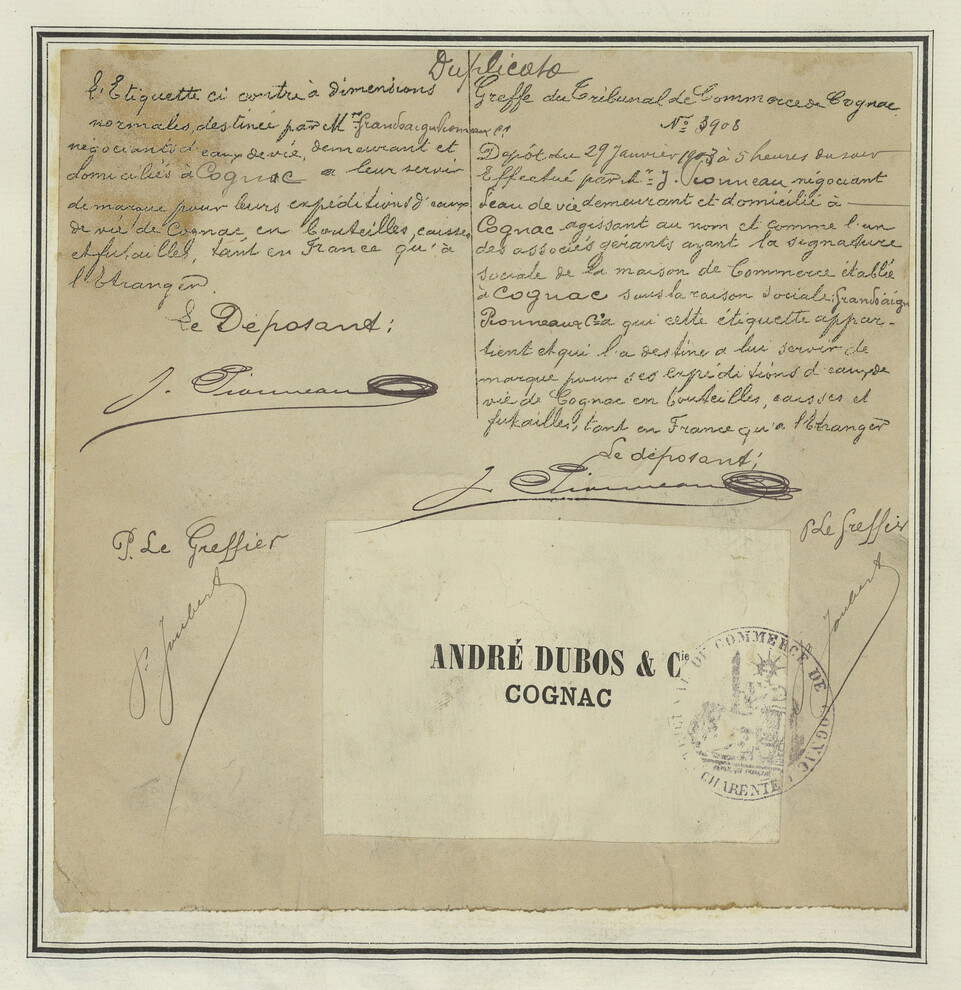 Duplicata
L'Etiquette ci contre à dimensions
normales, destinée par M.rs Grandsaigne Pionneau & Cie
négociants d'eaux de vie, demeurant et
domiciliés à Cognac a leur servir
de marque pour leurs expéditions d'eaux
de vie de Cognac en bouteilles, caisses
et futailles, tant en France qu'à
l'Etranger.
Le Déposant;
J. Pionneau
P. Le Greffier
P. Joubert
Greffe du Tribunal de Commerce de Cognac
No. 3908
Dépôt du 29 Janvier 1903 à 5 heures du soir
Effectué par M.r J. Pionneau négociant
d'eau de vie demeurant et domicilié à
Cognac agissant au nom et comme l'un
des associés gérants ayant la signature
sociale de la maison de Commerce établie
à Cognac sous la raison sociale: Grandsaigne
Pionneau & Cie a qui cette étiquette appar-
tient et qui l'a destine a lui servir de
marque pour ses expéditions d'eaux de
vie de Cognac en bouteilles, caisses et
futailles, tant en France qu'a l'Etranger
Le déposant;
J. Pionneau
P. Le Greffier
Joubert
ANDRÉ DUBOS & Cie
COGNAC
TRIBUNAL DE COMMERCE DE COGNAC
CHARENTE